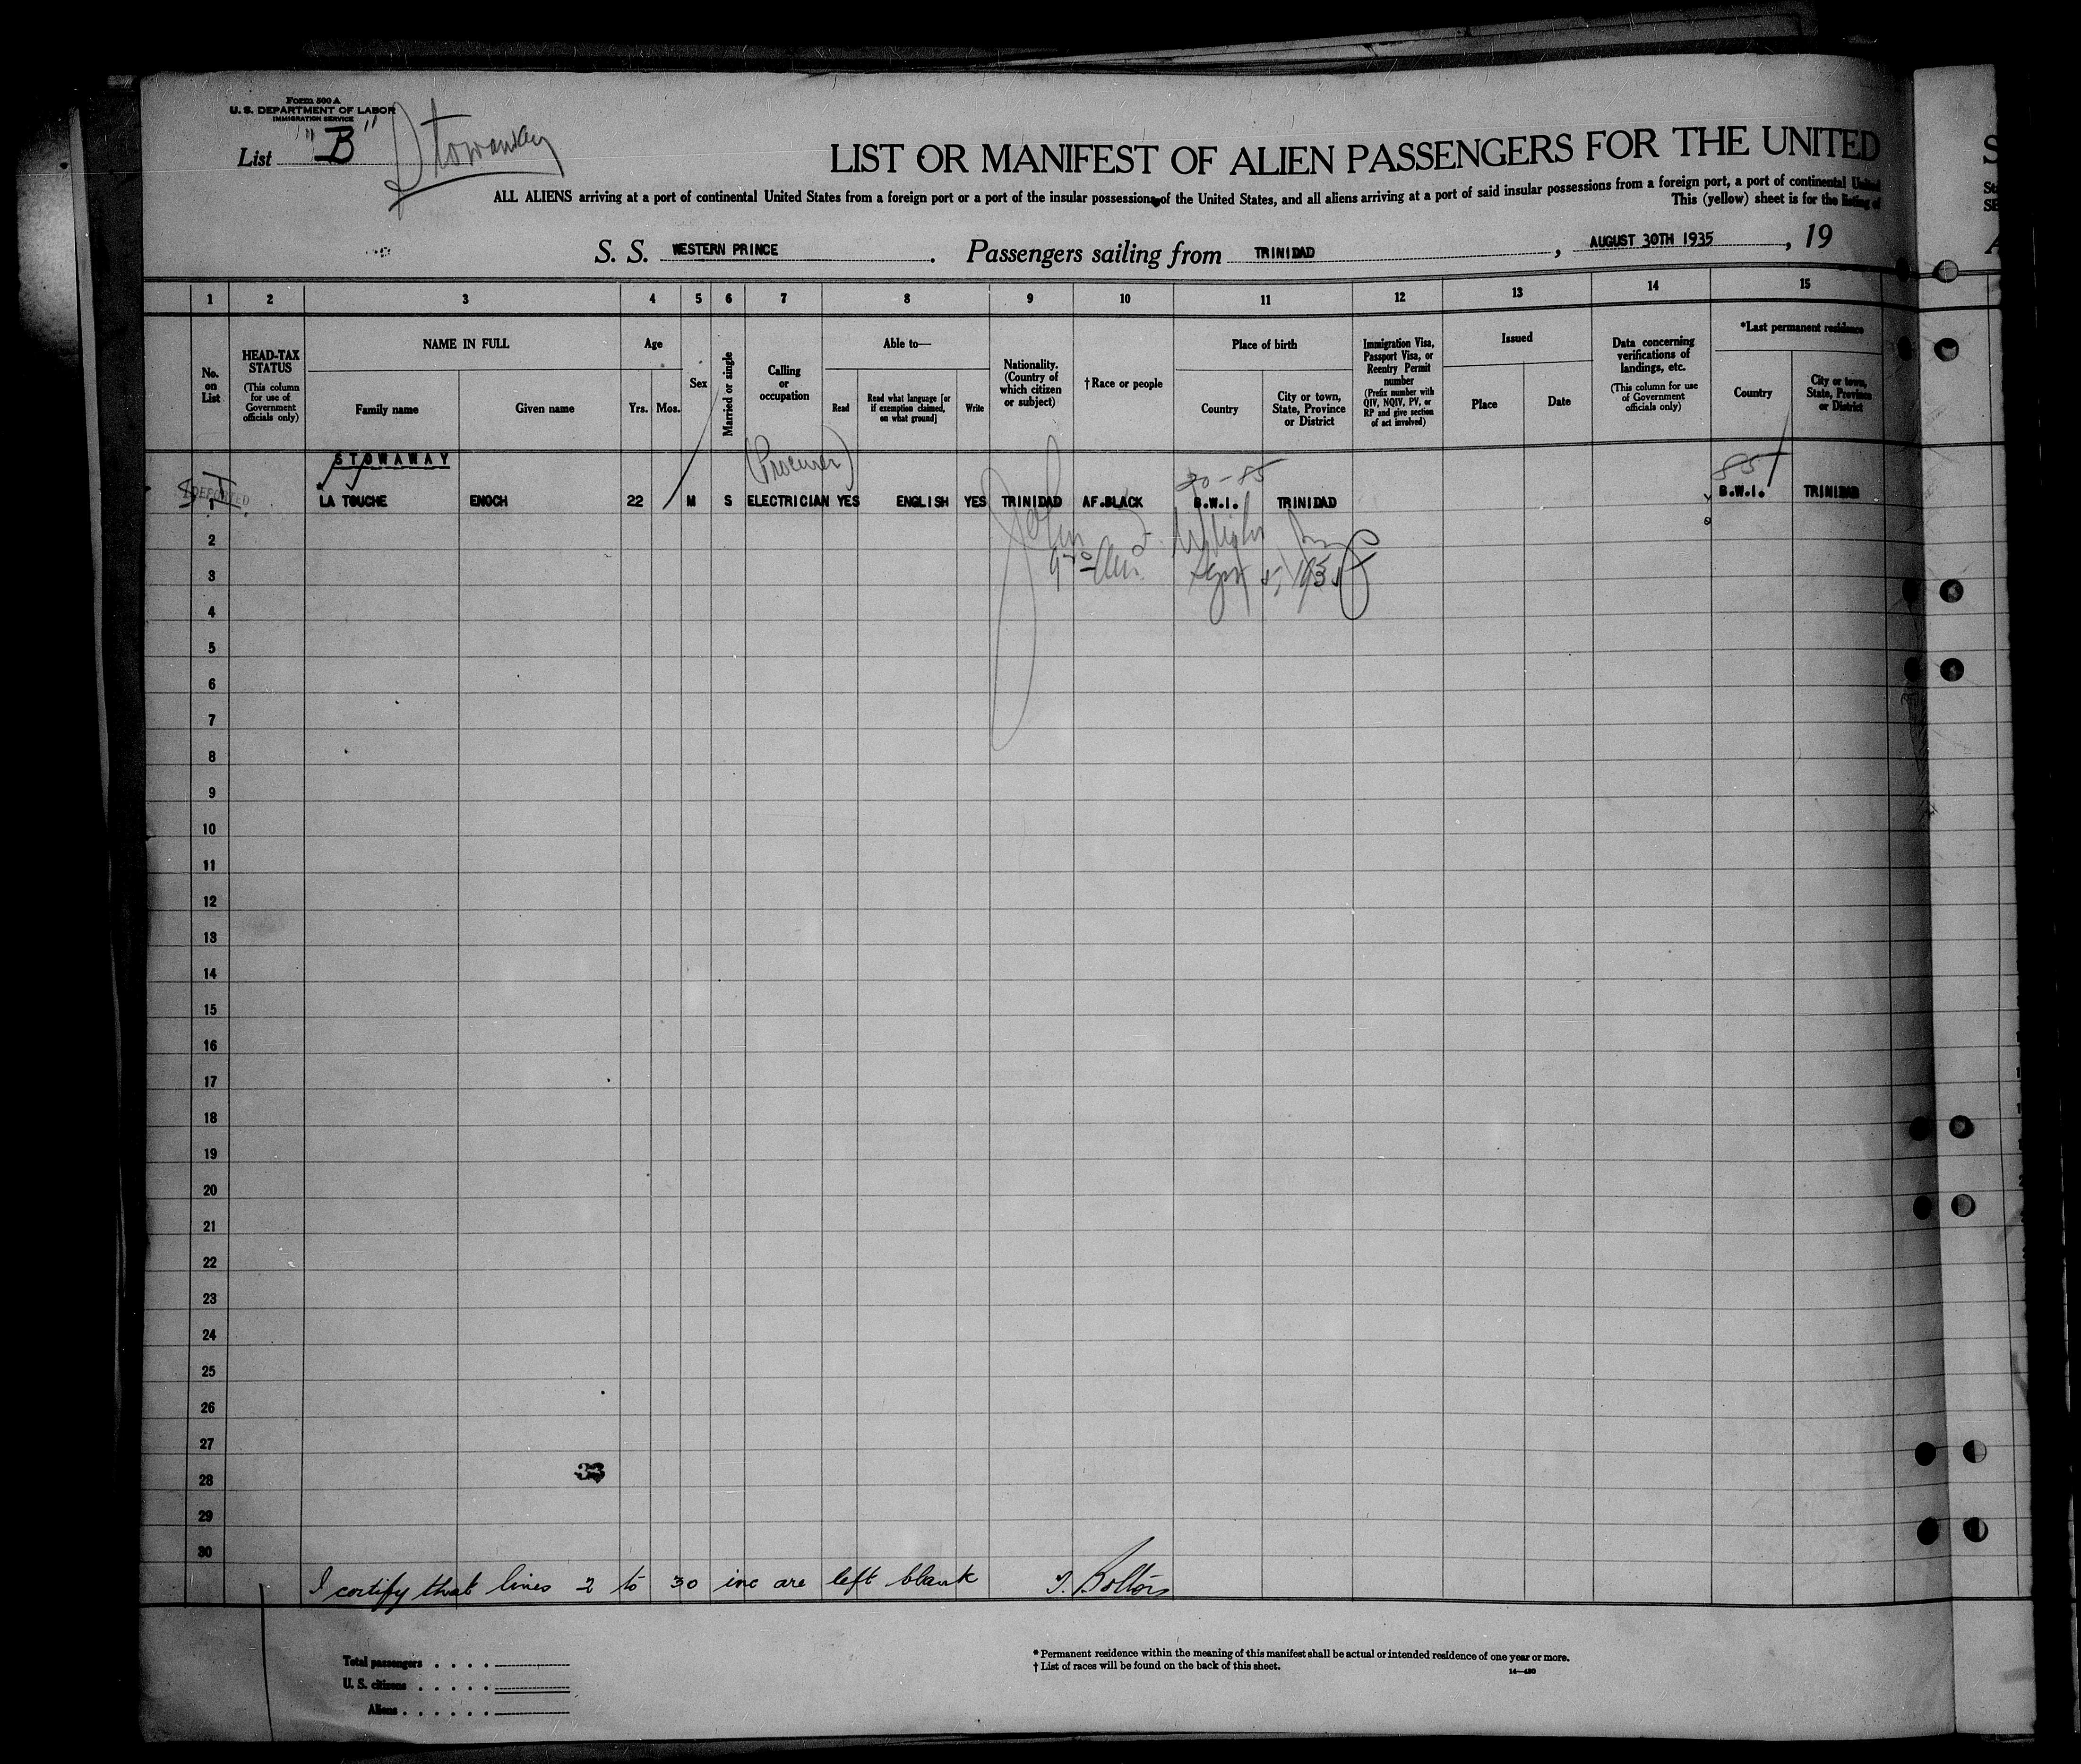 Form 500 A
U. S. DEPARTMENT OF LABOR
IMMIGRATION SERVICE
List "B" Stowaway
LIST OR MANIFEST OF ALIEN PASSENGERS FOR THE UNITED
ALL ALIENS arriving at a port of continental United States from a foreign port or a port of the insular possessions of the United States, and all aliens arriving at a port of said insular possessions from a foreign port, a port of continental United
This (yellow) sheet is for the listing of
S. S. WESTERN PRINCE. Passengers sailing from TRINIDAD, AUGUST 30TH 1935, 19
1 2 3 4 5 6 7 8 9 10 11 12 13 14 15
No. on List
HEAD-TAX STATUS
(This column for use of Government officials only)
NAME IN FULL
Family name
Given name
Age
Yrs. Mos.
Sex
Married or single
Calling or occupation
Able to—
Read
Read what language [or if exemption claimed, on what ground]
Write
Nationality. (Country of which citizen or subject)
†Race or people
Place of birth
Country
City or town, State, Province or District
Immigration Visa, Passport Visa, or Reentry Permit number
(Prefix number with QIV, NQIV, PV, or RP and give section of act involved)
Issued
Place
Date
Data concerning verifications of landings, etc.
(This column for use of Government officials only)
*Last permanent residence
Country
City or town, State, Province or District
STOWAWAY
DEPORTED
1 LA TOUCHE ENOCH 22 M S ELECTRICIAN YES ENGLISH YES TRINIDAD AF.BLACK B.W.I. TRINIDAD B.W.I. TRINIDAD
85
2
3
4
5
6
7
8
9
10
11
12
13
14
15
16
17
18
19
20
21
22
23
24
25
26
27
28
33
29
30
I certify that lines 2 to 30 inc are left blank
Total passengers
U. S. citizens
Aliens
* Permanent residence within the meaning of this manifest shall be actual or intended residence of one year or more.
† List of races will be found on the back of this sheet.
14—430